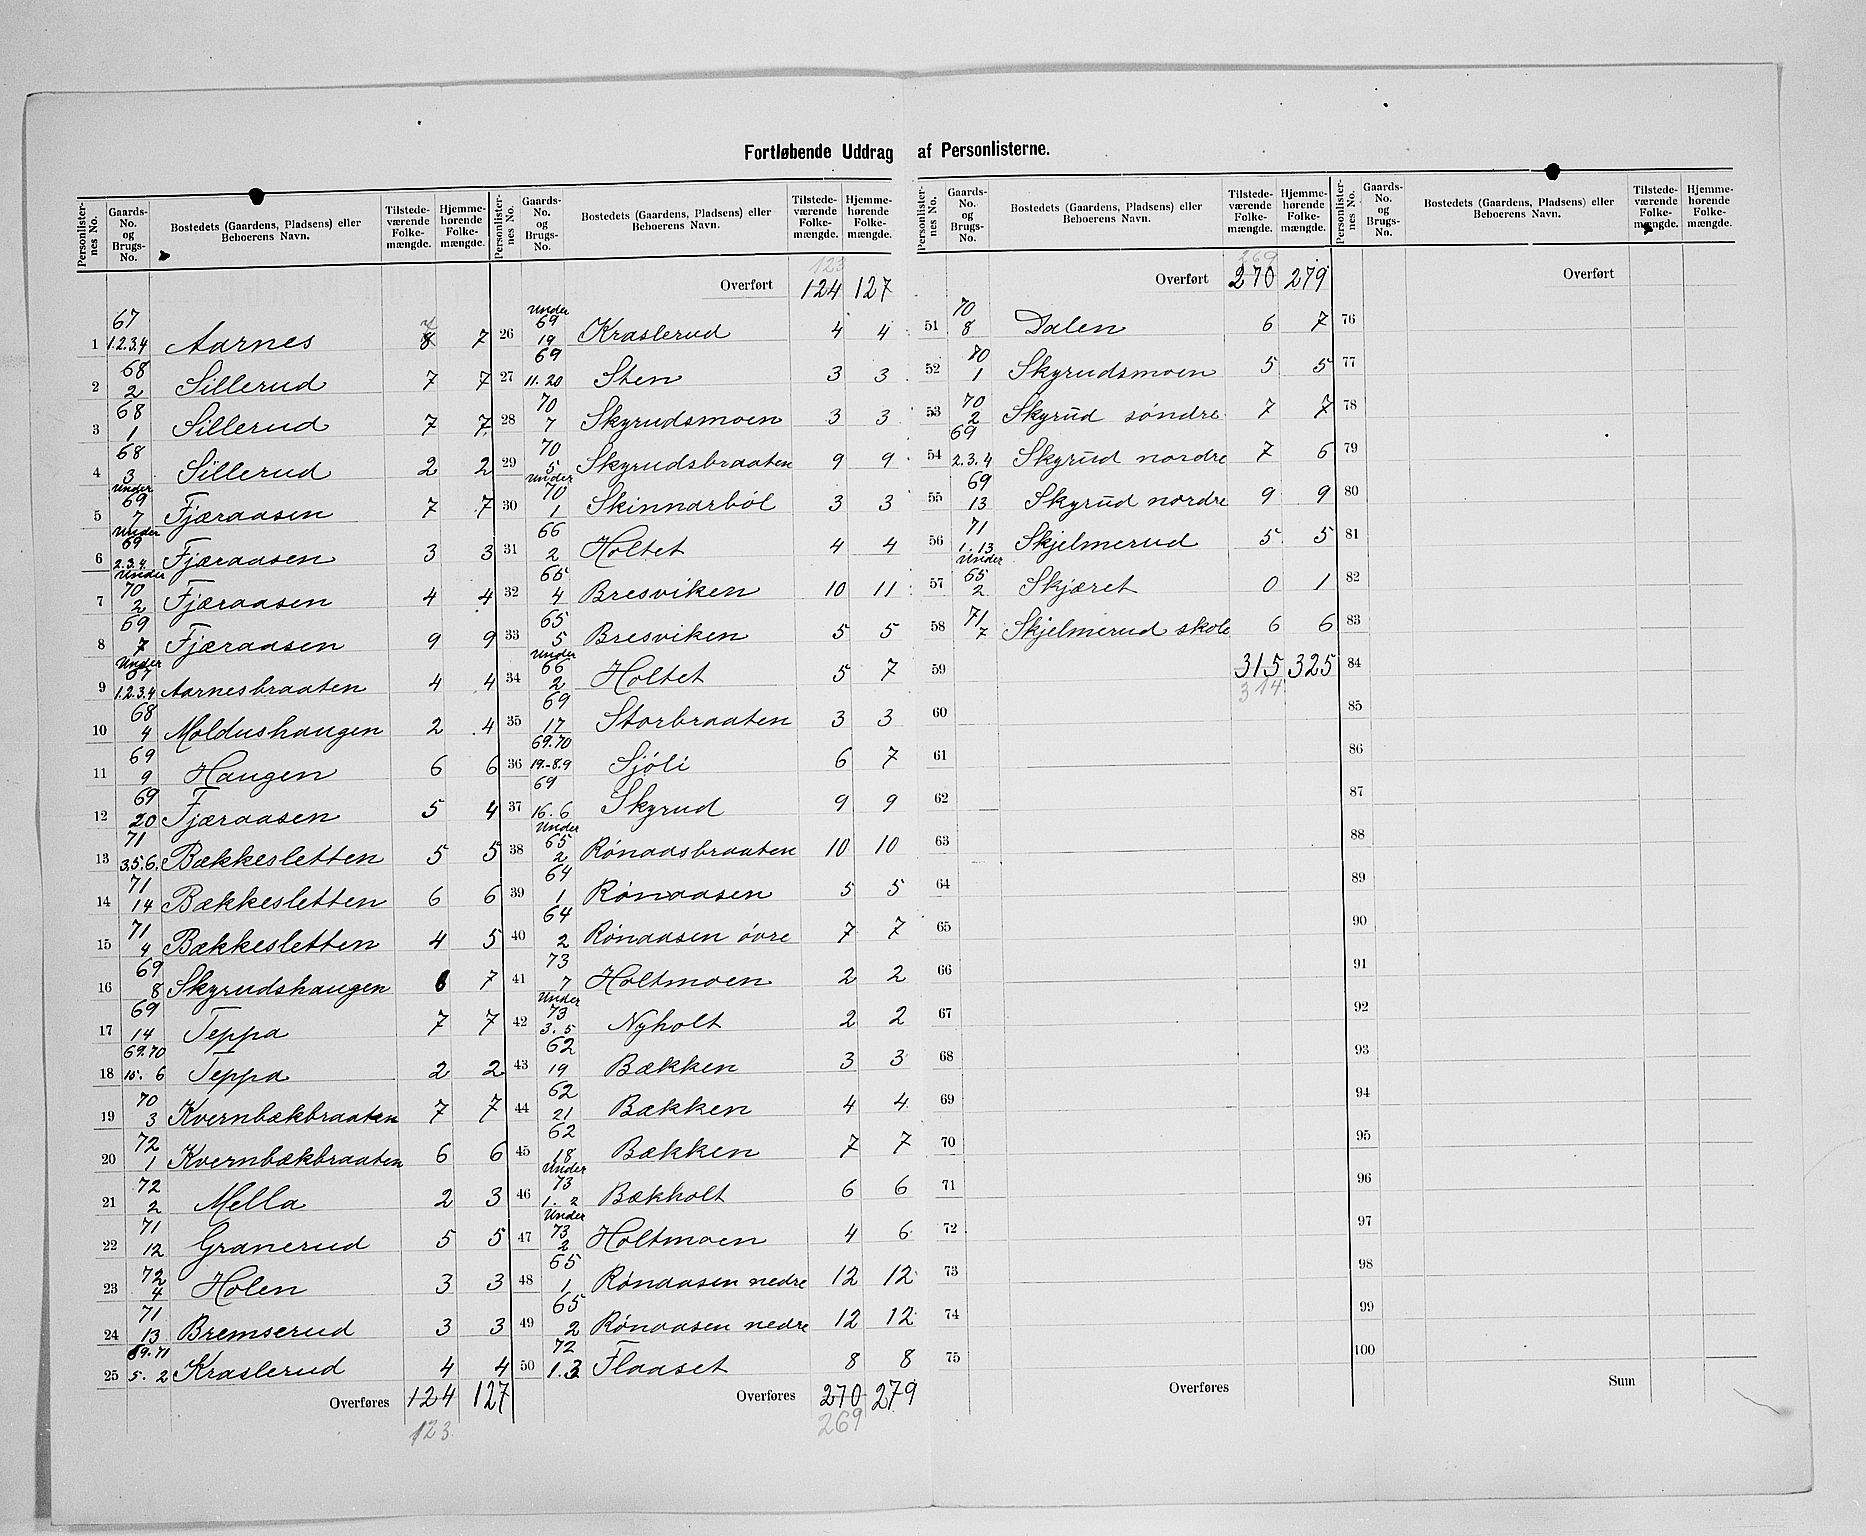 Fortløbende Uddrag af Personlisterne.
Personlister-nes No. | Gaards-No. og Brugs-No. | Bostedets (Gaardens, Pladsens) eller Beboerens Navn. | Tilstede-værende Folke-mængde. | Hjemme-hørende Folke-mængde.
1 | 67 1.2.3.4 | Aarnes | 8 7 | 7
2 | 68 2 | Sillerud | 7 | 7
3 | 68 1 | Sillerud | 7 | 7
4 | 68 3 | Sillerud | 2 | 2
5 | Under 69 7 | Fjæraasen | 7 | 7
6 | Under 69 2.3.4 | Fjæraasen | 3 | 3
7 | Under 70 2 | Fjæraasen | 4 | 4
8 | 69 7 | Fjæraasen | 9 | 9
9 | Under 67 1.2.3.4 | Aarnesbraaten | 4 | 4
10 | 68 4 | Moldushaugen | 2 | 4
11 | 69 9 | Haugen | 6 | 6
12 | 69 20 | Fjæraasen | 5 | 4
13 | 71 3.5.6. | Bækkesletten | 5 | 5
14 | 71 14 | Bækkesletten | 6 | 6
15 | 71 4 | Bækkesletten | 4 | 5
16 | 69 8 | Skyrudshaugen | 6 | 7
17 | 69 14 | Teppa | 7 | 7
18 | 69.70 15. 6 | Teppa | 2 | 2
19 | 70 3 | Kvernbækbraaten | 7 | 7
20 | 72 1 | Kvernbækbraaten | 6 | 6
21 | 72 2 | Mella | 2 | 3
22 | 71 12 | Granerud | 5 | 5
23 | 72 4 | Holen | 3 | 3
24 | 71 13 | Bremserud | 3 | 3
25 | 69.71 5. 2 | Kraslerud | 4 | 4
Overføres | 124 | 127
123
Personlister-nes No. | Gaards-No. og Brugs-No. | Bostedets (Gaardens, Pladsens) eller Beboerens Navn. | Tilstede-værende Folke-mængde. | Hjemme-hørende Folke-mængde.
123
Overført | 124 | 127
26 | Under 69 19 | Kraslerud | 4 | 4
27 | 69 11.20 | Sten | 3 | 3
28 | 70 7 | Skyrudsmoen | 3 | 3
29 | 70 5 | Skyrudsbraaten | 9 | 9
30 | Under 70 1 | Skinnarböl | 3 | 3
31 | 66 2 | Holtet | 4 | 4
32 | 65 4 | Bresviken | 10 | 11
33 | 65 5 | Bresviken | 5 | 5
34 | Under 66 2 | Holtet | 5 | 7
35 | 69 17 | Storbraaten | 3 | 3
36 | 69.70 19.-8.9 | Sjöli | 6 | 7
37 | 69 16. 6 | Skyrud | 9 | 9
38 | Under 65 2 | Rönaasbraaten | 10 | 10
39 | 64 1 | Rönaasen | 5 | 5
40 | 64 2 | Rönaasen övre | 7 | 7
41 | 73 7 | Holtmoen | 2 | 2
42 | Under 73 3. 5 | Nyholt | 2 | 2
43 | 62 19 | Bækken | 3 | 3
44 | 62 21 | Bækken | 4 | 4
45 | 62 18 | Bækken | 7 | 7
46 | Under 73 1. 2 | Bækholt | 6 | 6
47 | Under 73 2 | Holtmoen | 4 | 6
48 | 65 1 | Rönaasen nedre | 12 | 12
49 | 65 2 | Rönaasen nedre | 12 | 12
50 | 72 1.3 | Flaaset | 8 | 8
Overføres | 270 | 279
269
Personlister-nes No. | Gaards-No. og Brugs-No. | Bostedets (Gaardens, Pladsens) eller Beboerens Navn. | Tilstede-værende Folke-mængde. | Hjemme-hørende Folke-mængde.
269
Overført | 270 | 279
51 | 70 8 | Dalen | 6 | 7
52 | 70 1 | Skyrudsmoen | 5 | 5
53 | 70 2 | Skyrud söndre | 7 | 7
54 | 69 2.3.4 | Skyrud nordre | 7 | 6
55 | 69 13 | Skyrud nordre | 9 | 9
56 | 71 1.13 | Skjelmerud | 5 | 5
57 | Under 65 2 | Skjæret | 0 | 1
58 | 71 7 | Skjelmerud skole | 6 | 6
59 | 315 | 325
314
60
61
62
63
64
65
66
67
68
69
70
71
72
73
74
75
Overføres
Personlister-nes No. | Gaards-No. og Brugs-No. | Bostedets (Gaardens, Pladsens) eller Beboerens Navn. | Tilstede-værende Folke-mængde. | Hjemme-hørende Folke-mængde.
Overført
76
77
78
79
80
81
82
83
84
85
86
87
88
89
90
91
92
93
94
95
96
97
98
99
100
Sum